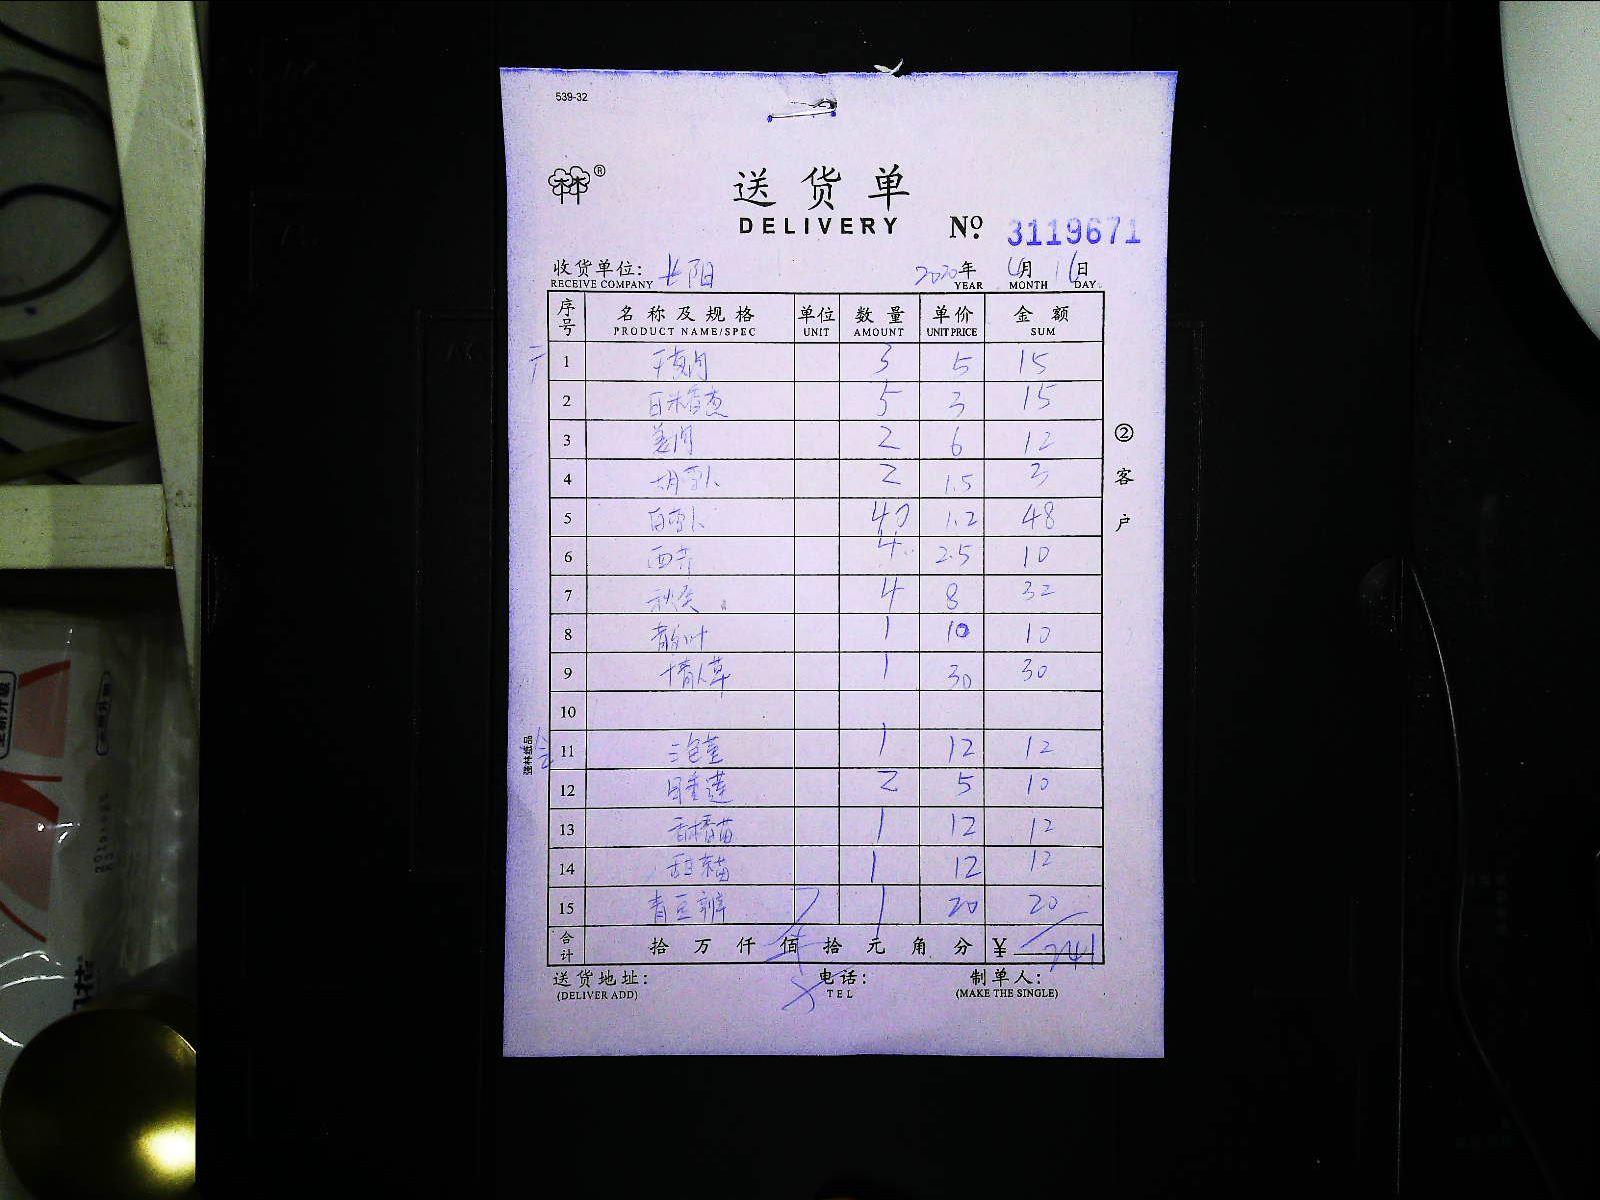 539-32
®
送货单
DELIVERY
№ 3119671
收货单位: 长阳 2020年 4月 16日
RECEIVE COMPANY YEAR MONTH DAY
序号 名称及规格 单位 数量 单价 金额
PRODUCT NAME/SPEC UNIT AMOUNT UNIT PRICE SUM
1 3 5 15
2 5 3 15
3 姜 2 6 12
4 胡萝卜 2 1.5 3
5 白萝卜 40 1.2 48
6 西芹 4 2.5 10
7 秋葵 4 8 32
8 1 10 10
9 情人草 1 30 30
10
11 三色堇 1 12 12
12 睡莲 2 5 10
13 苗 1 12 12
14 甜菜苗 1 12 12
15 青豆瓣 1 20 20
合计 拾万仟佰拾元角分 ¥ 241
送货地址: 电话: 制单人:
(DELIVER ADD) TEL (MAKE THE SINGLE)
②客户
强林纸品